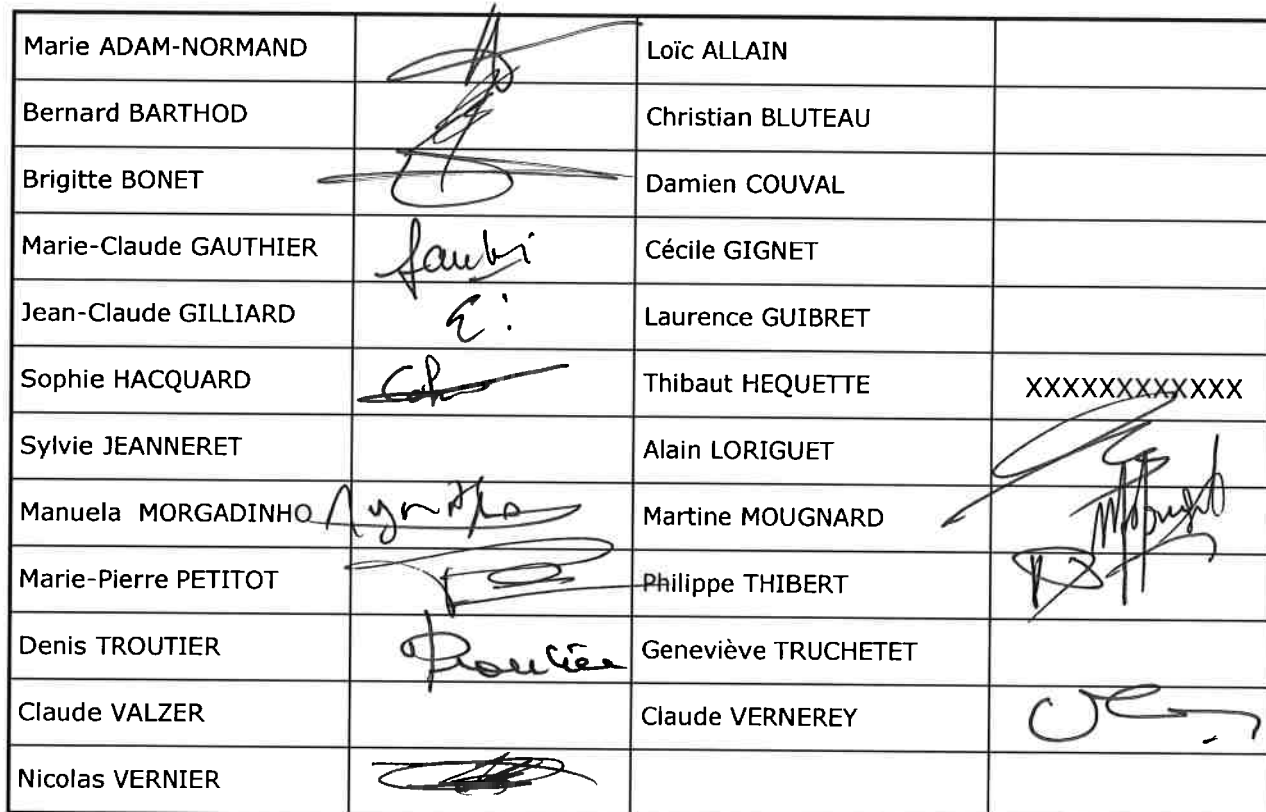 Marie ADAM-NORMAND Loïc ALLAIN
Bernard BARTHOD Christian BLUTEAU
Brigitte BONET Damien COUVAL
Marie-Claude GAUTHIER Cécile GIGNET
Jean-Claude GILLIARD Laurence GUIBRET
Sophie HACQUARD Thibaut HEQUETTE XXXXXXXXXXXX
Sylvie JEANNERET Alain LORIGUET
Manuela MORGADINHO Martine MOUGNARD
Marie-Pierre PETITOT Philippe THIBERT
Denis TROUTIER Geneviève TRUCHETET
Claude VALZER Claude VERNEREY
Nicolas VERNIER